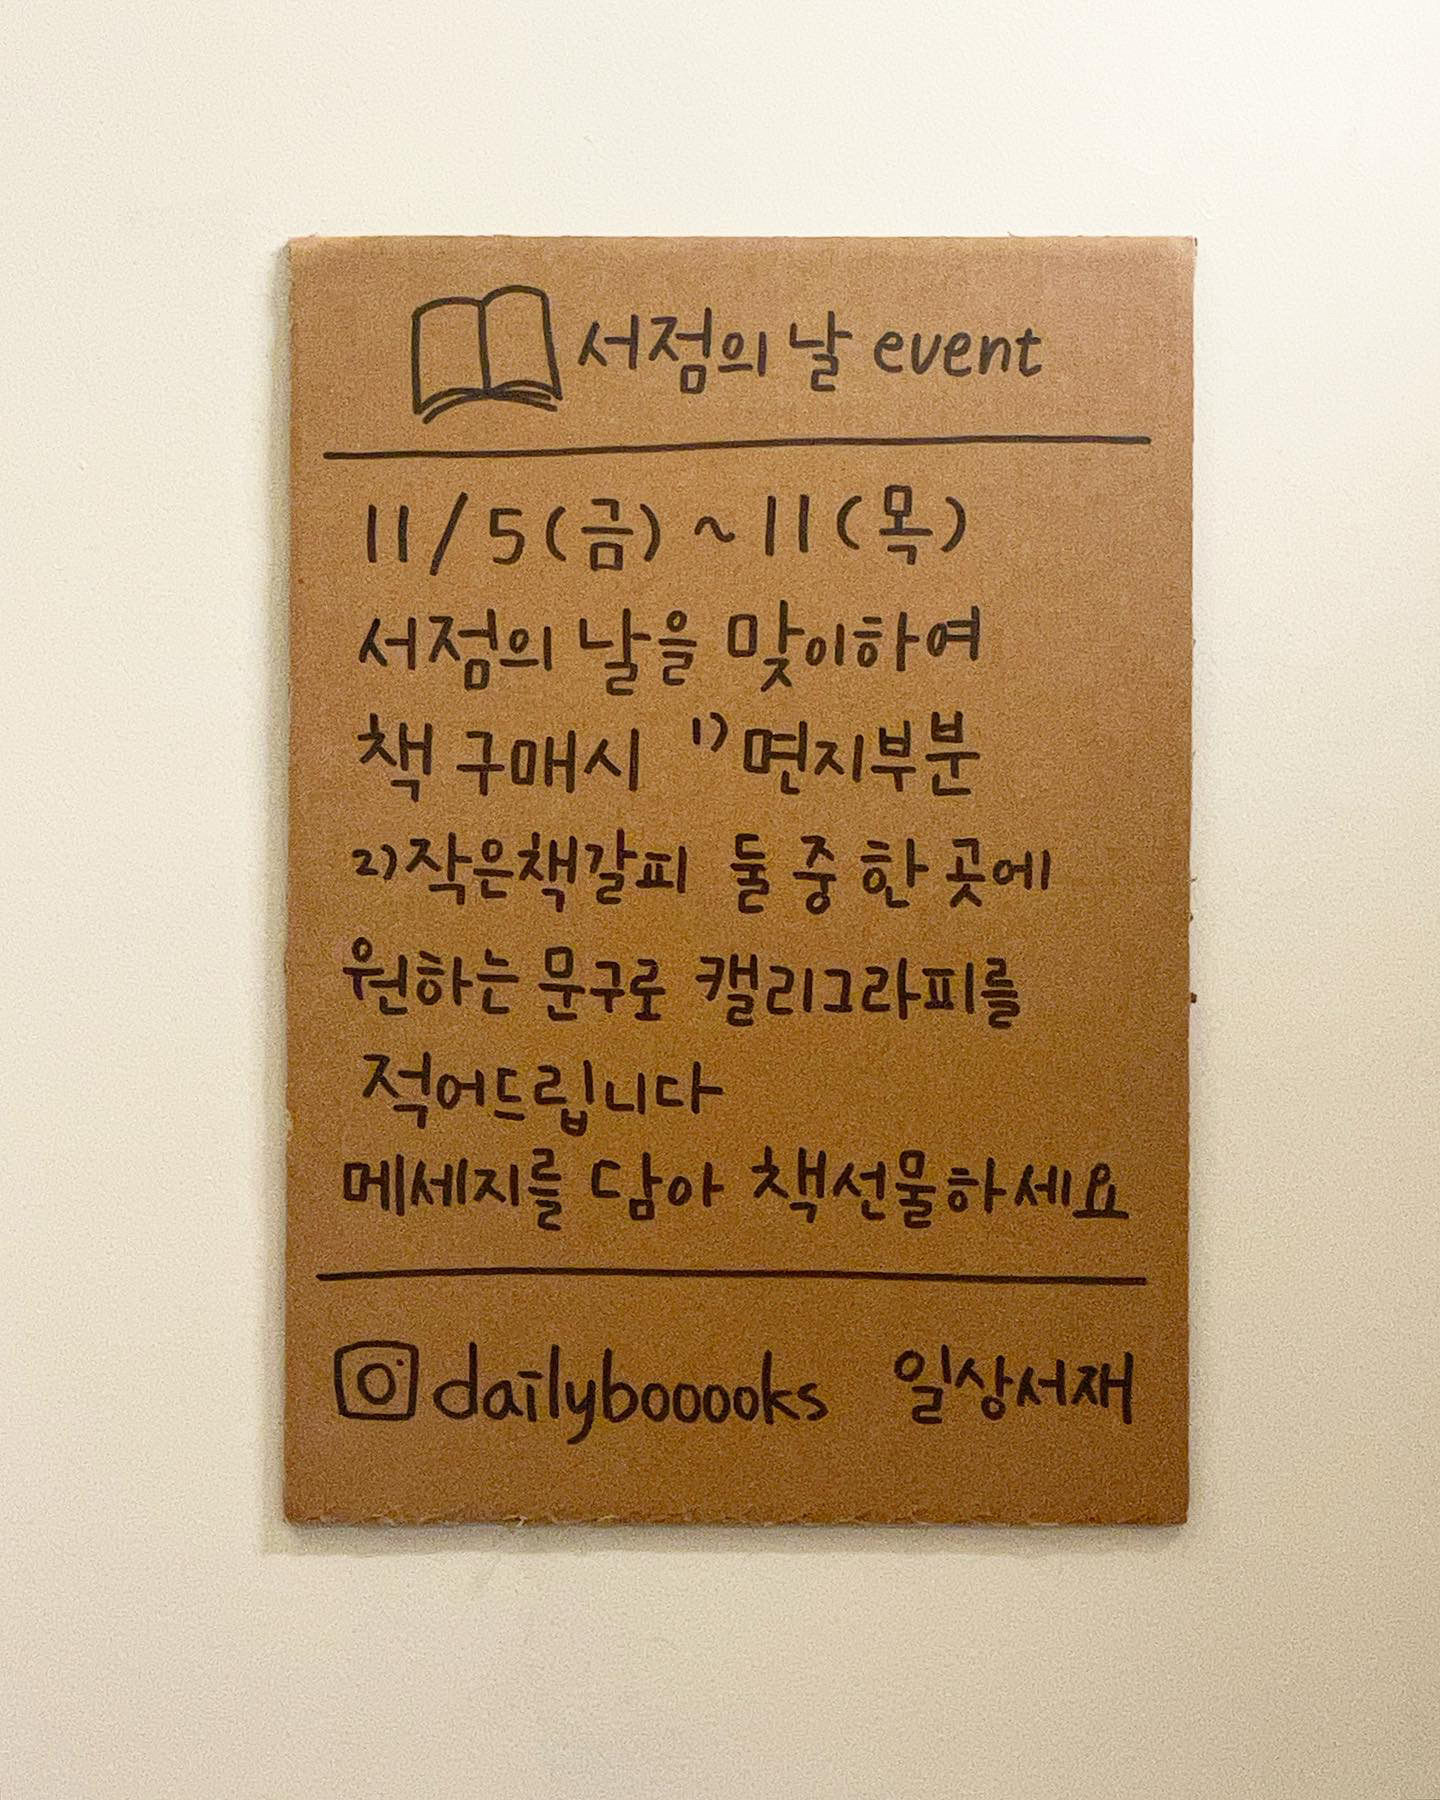 서점의 날 event
11/5(금)~11(목)
서점의 날을 맞이하여
책 구매시 1)면지부분
2)작은책갈피 둘 중 한 곳에
원하는 문구로 캘리그라피를
적어드립니다
메세지를 담아 책선물하세요
dailybooooks 일상서재